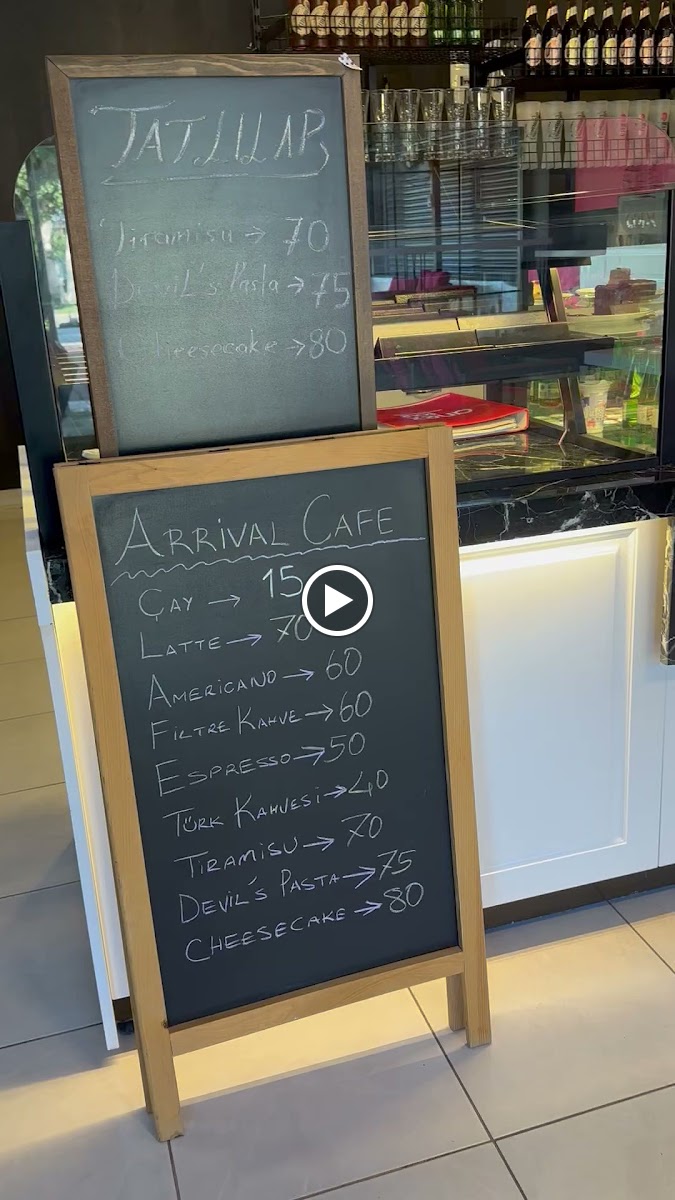 TATLILAR
Tiramisu → 70
Devil's Pasta → 75
Cheesecake → 80
ARRİVAL CAFE
ÇAY → 15
LATTE → 70
AMERICANO → 60
FİLTRE KAHVE → 60
ESPRESSO → 50
TÜRK KAHVESİ → 40
TİRAMİSU → 70
DEVİL'S PASTA → 75
CHEESECAKE → 80